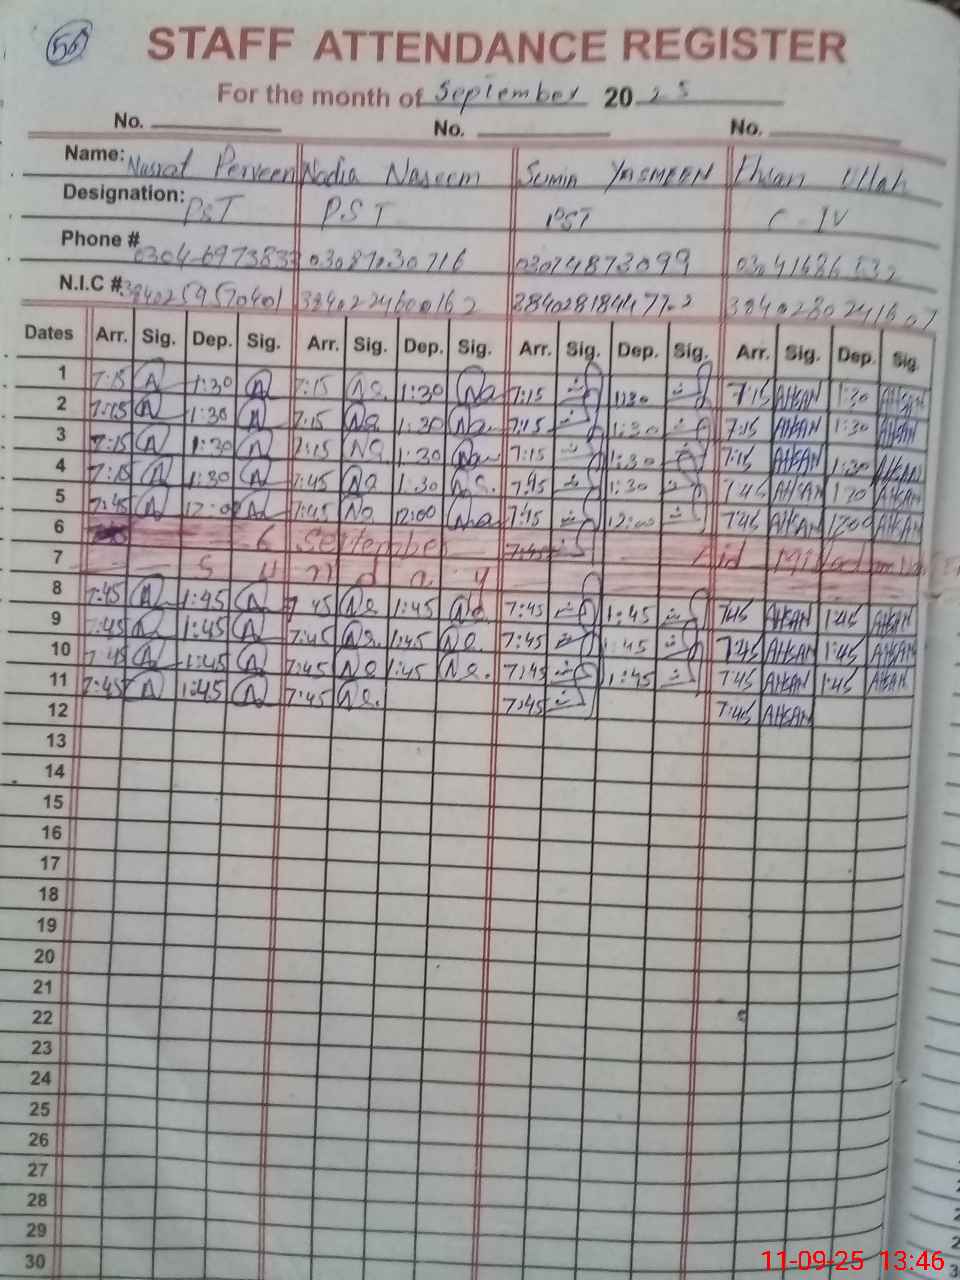 56
STAFF ATTENDANCE REGISTER
For the month of September 2025
No. No. No.
Name: Nusrat Perveen Nadia Naseem Sumia YASMEEN Ehsan Ullah
Designation: PST P.S.T PST C-IV
Phone # 03087030716 03074873099
N.I.C #
Dates Arr. Sig. Dep. Sig. Arr. Sig. Dep. Sig. Arr. Sig. Dep. Sig. Arr. Sig. Dep. Sig.
1 7:15 A 1:30 A 7:15 Na. 1:30 Na 7:15 1:30 7:15 AHSAN 1:30 AHSAN
2 7:15 A 1:30 A 7:15 Na. 1:30 Na 7:15 1:30 7:15 AHSAN 1:30 AHSAN
3 7:15 A 1:30 A 7:15 Na 1:30 Na 7:15 1:30 7:15 AHSAN 1:30 AHSAN
4 7:15 A 1:30 A 7:45 Na 1:30 Na. 7:45 1:30 7:45 AHSAN AHSAN
5 7:45 A 12:00 A 7:45 Na 12:00 Na 12:00 7:45 AHSAN 12:00 AHSAN
6 6 September 7:45 Eid Milad
7 Sunday
8 7:45 A 1:45 A 7:45 Na 1:45 Na 7:45 1:45 7:45 AHSAN 1:45 AHSAN
9 7:45 A 1:45 A 7:45 Na. 1:45 Na. 7:45 1:45 7:45 AHSAN 1:45 AHSAN
10 7:45 A 1:45 A 7:45 Na 1:45 Na. 7:45 1:45 7:45 AHSAN 1:45 AHSAN
11 7:45 A 1:45 A 7:45 Na. 7:45 7:45 AHSAN
12
13
14
15
16
17
18
19
20
21
22
23
24
25
26
27
28
29
30
11-09-25 13:46